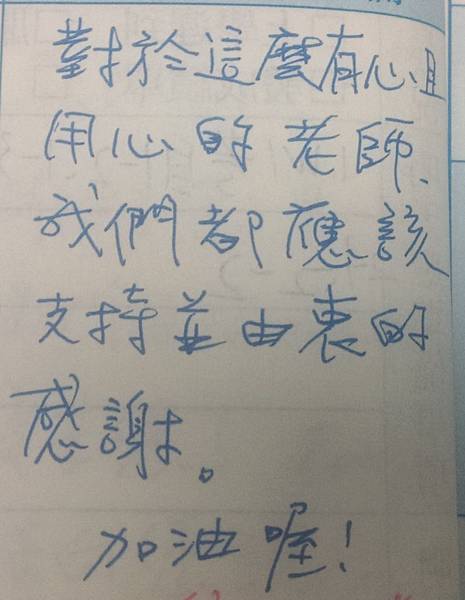 對於這麼有心且
用心的老師、
我們都應該
支持並由衷的
感謝。
加油喔!